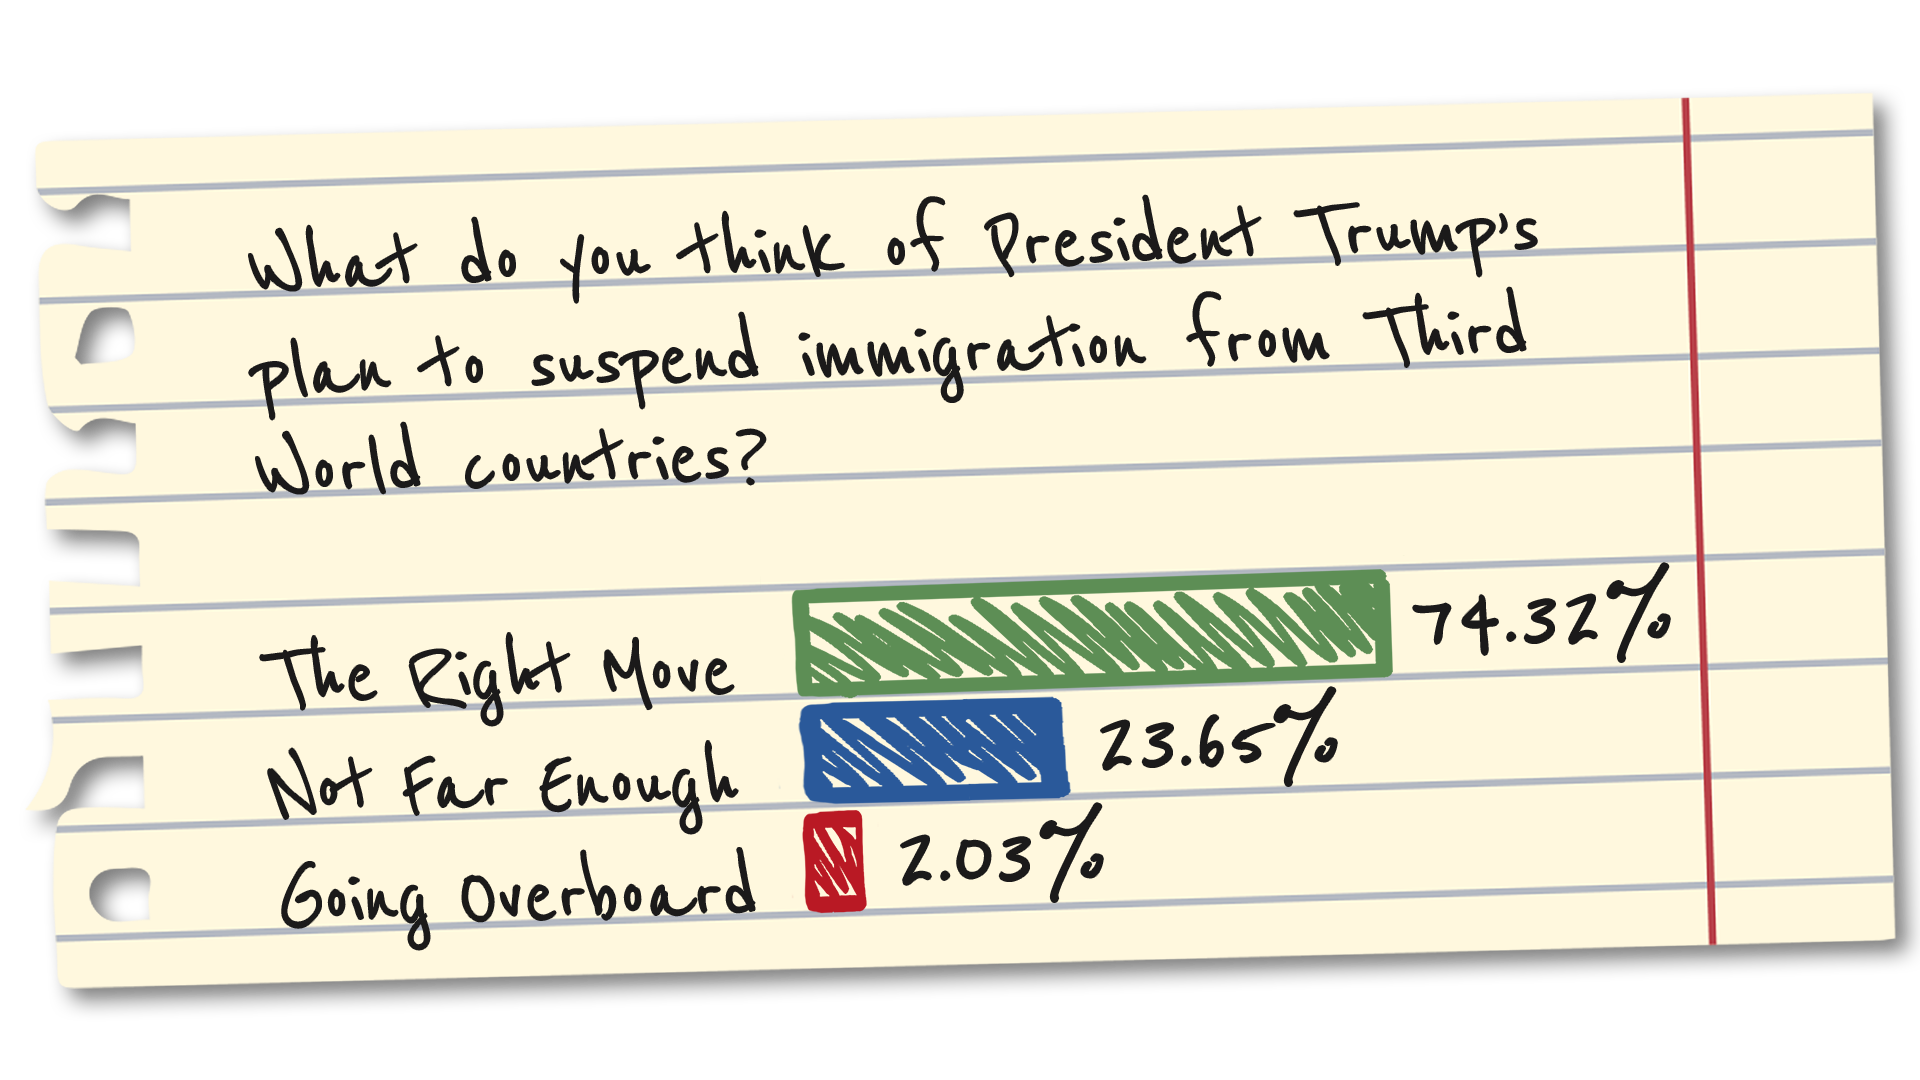 What do you think of President Trump's
plan to suspend immigration from Third
World countries?
The Right Move 74.32%
Not Far Enough 23.65%
Going Overboard 2.03%